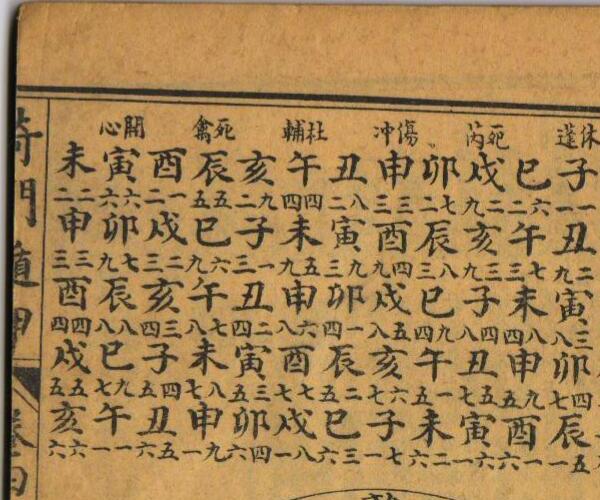 休蓬
子一一丑二九寅三八卯辰五一
巳六二午七三未八四申九五酉一六
死芮
戌二九亥三九子四八丑五七寅六一
卯七二辰八三巳九四午一五未二六
傷冲
申三三酉四九戌五八亥六七子七一
丑八二寅九三卯一四辰二五巳三六
杜輔
午四四未五九申六八酉七七戌八一
亥九二子一三丑二四寅三五卯四六
死禽
辰五五巳六九午七八未八七申九一
酉一二戌二三亥三四子四五丑五六
開心
寅六六卯七九辰八八巳九七午一一
未二二申三三酉四四戌五五亥六六
奇門遁甲